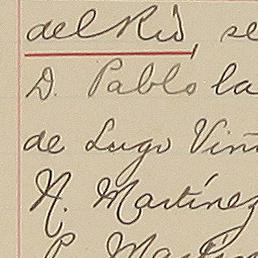 del Rió, se
D. Pablo la
de Lugo Viñ
N. Martínez
P. Martín